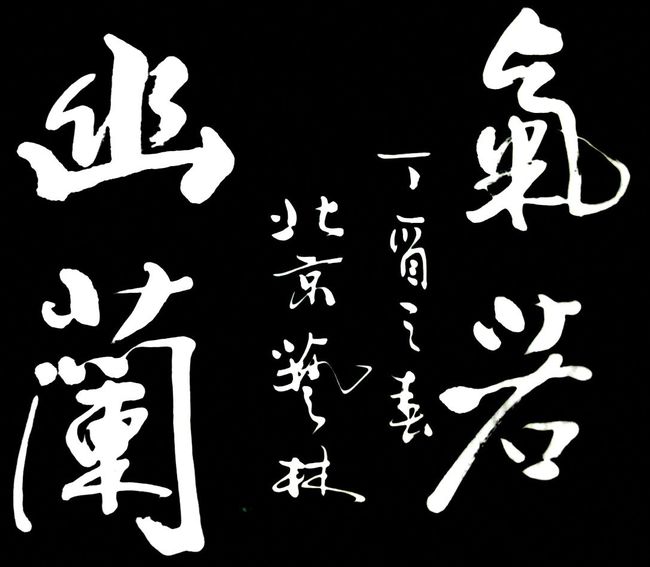 氣若
丁酉之春
北京藝林
幽蘭